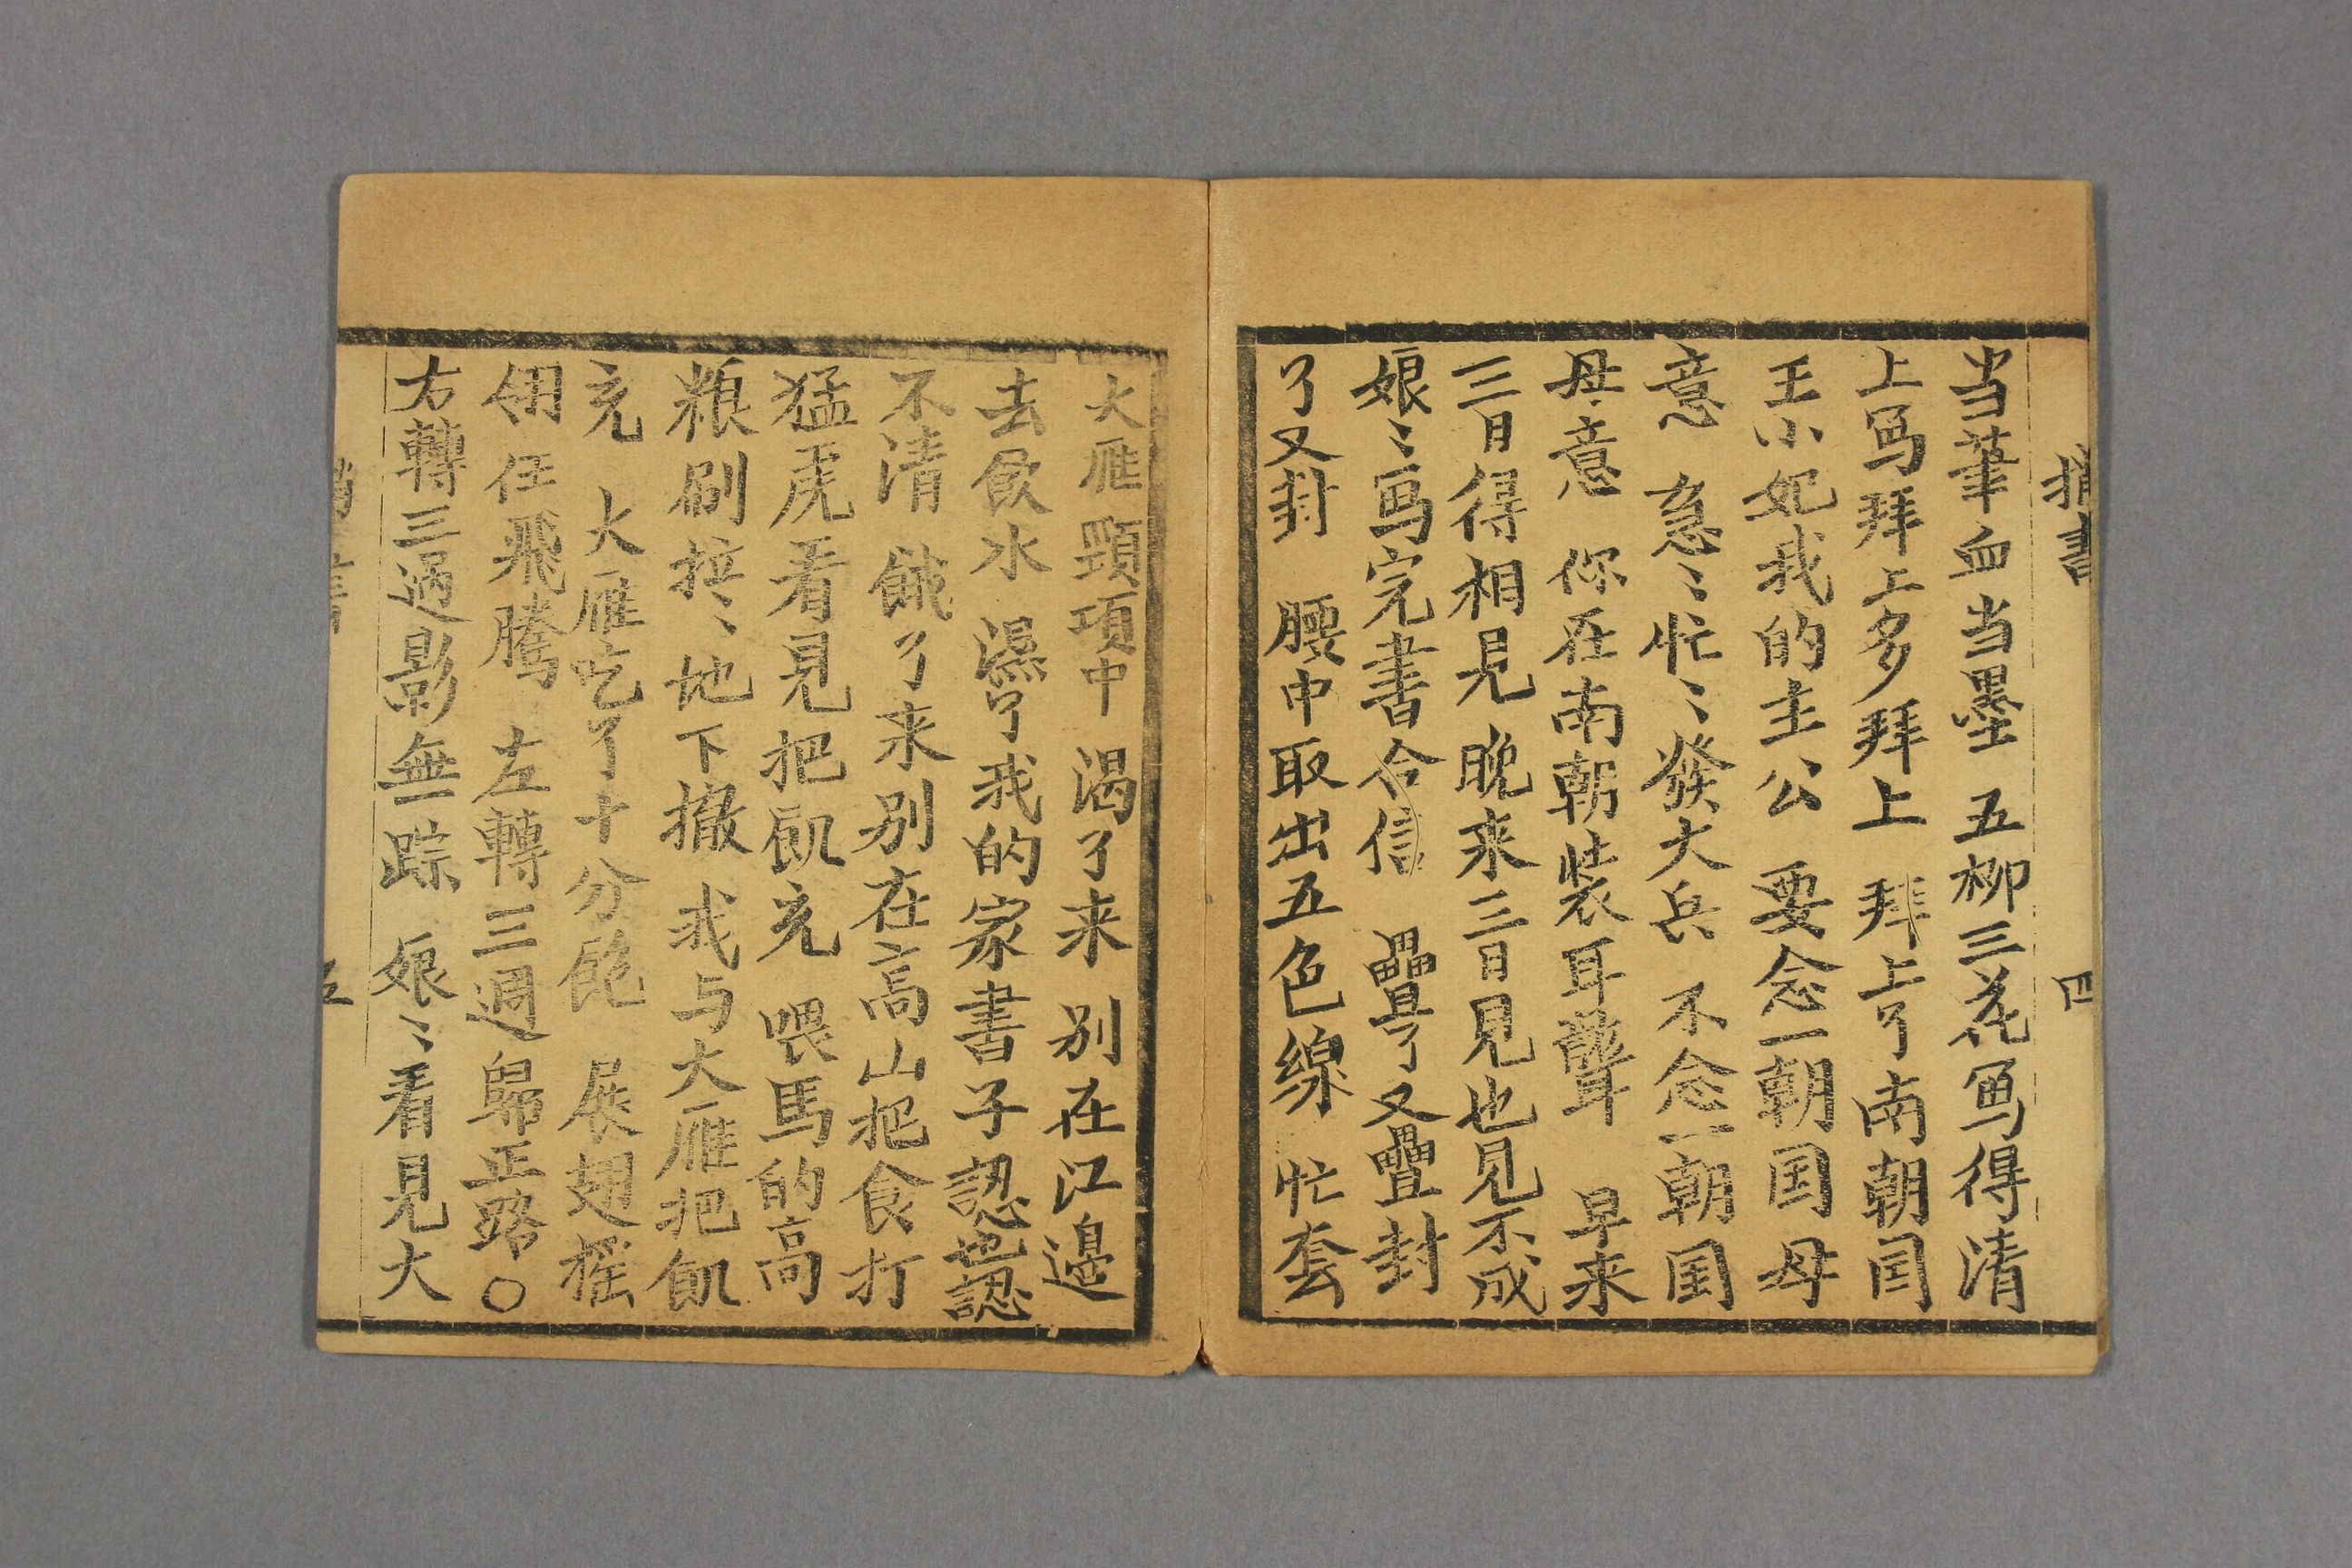 捎書 四
当筆血当墨 五柳三花寫得清
上寫拜上多拜上 拜上了南朝囯
王小妃我的主公 要念一朝囯母
意 急〻忙〻發大兵 不念一朝囯
母意 你在南朝裝耳聾 早来
三日得相見 晚来三日見也見不成
娘〻寫完書合信 疊了又疊封
了又封 腰中取出五色線 忙套
大雁頸項中 渴了来別在江邊
去飲水 濕了我的家書子認也認
不清 餓了来別在高山把食打
猛虎看見把飢充 喂馬的高
粮刷拉〻地下撒 我与大雁把飢
充 大雁吃了十分飽 展翅摇
翎任飛騰 左轉三週歸正路〇
右轉三遍影無踪 娘〻看見大
捎書 五